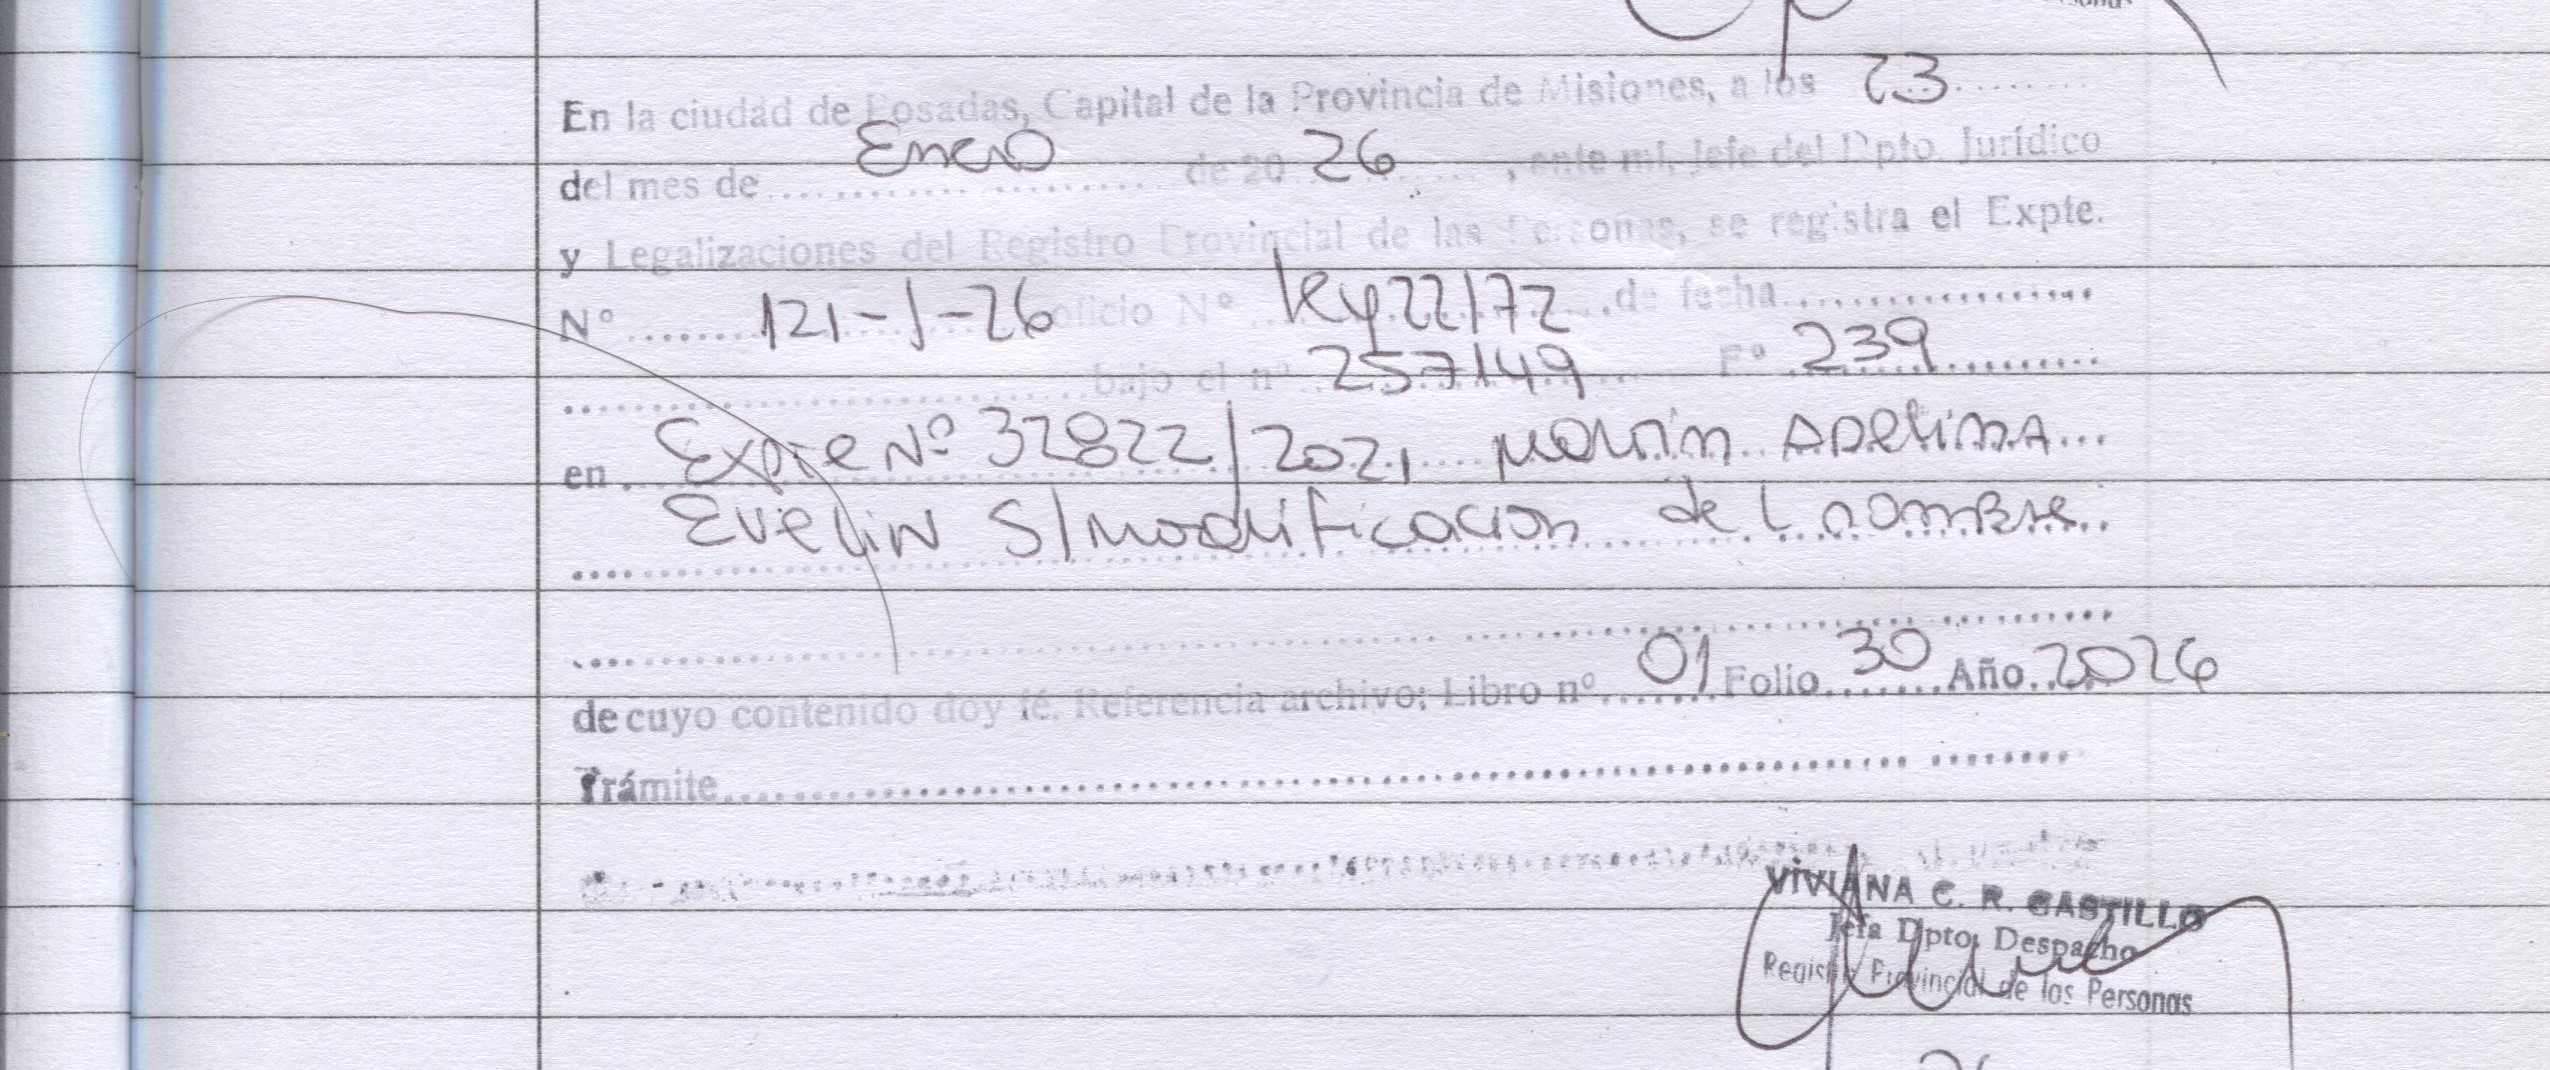 sonas
En la ciudad de Posadas, Capital de la Provincia de Misiones, a los 23
del mes de Enero de 20 26, ante mí, Jefe del Dpto. Jurídico
y Legalizaciones del Registro Provincial de las Personas, se registra el Expte.
Nº 121-J-26 oficio Nº ley 22172 de fecha
bajo el nº 257149 Fº 239
en Expte Nº 32822/2021 Adelina
Evelin S/Modificacion del nombre
de cuyo contenido doy fé. Referencia archivo; Libro nº 01 Folio 30 Año 2026
Trámite
VIVIANA C. R. CASTILLO
Jefa Dpto. Despacho
Registro Provincial de los Personas